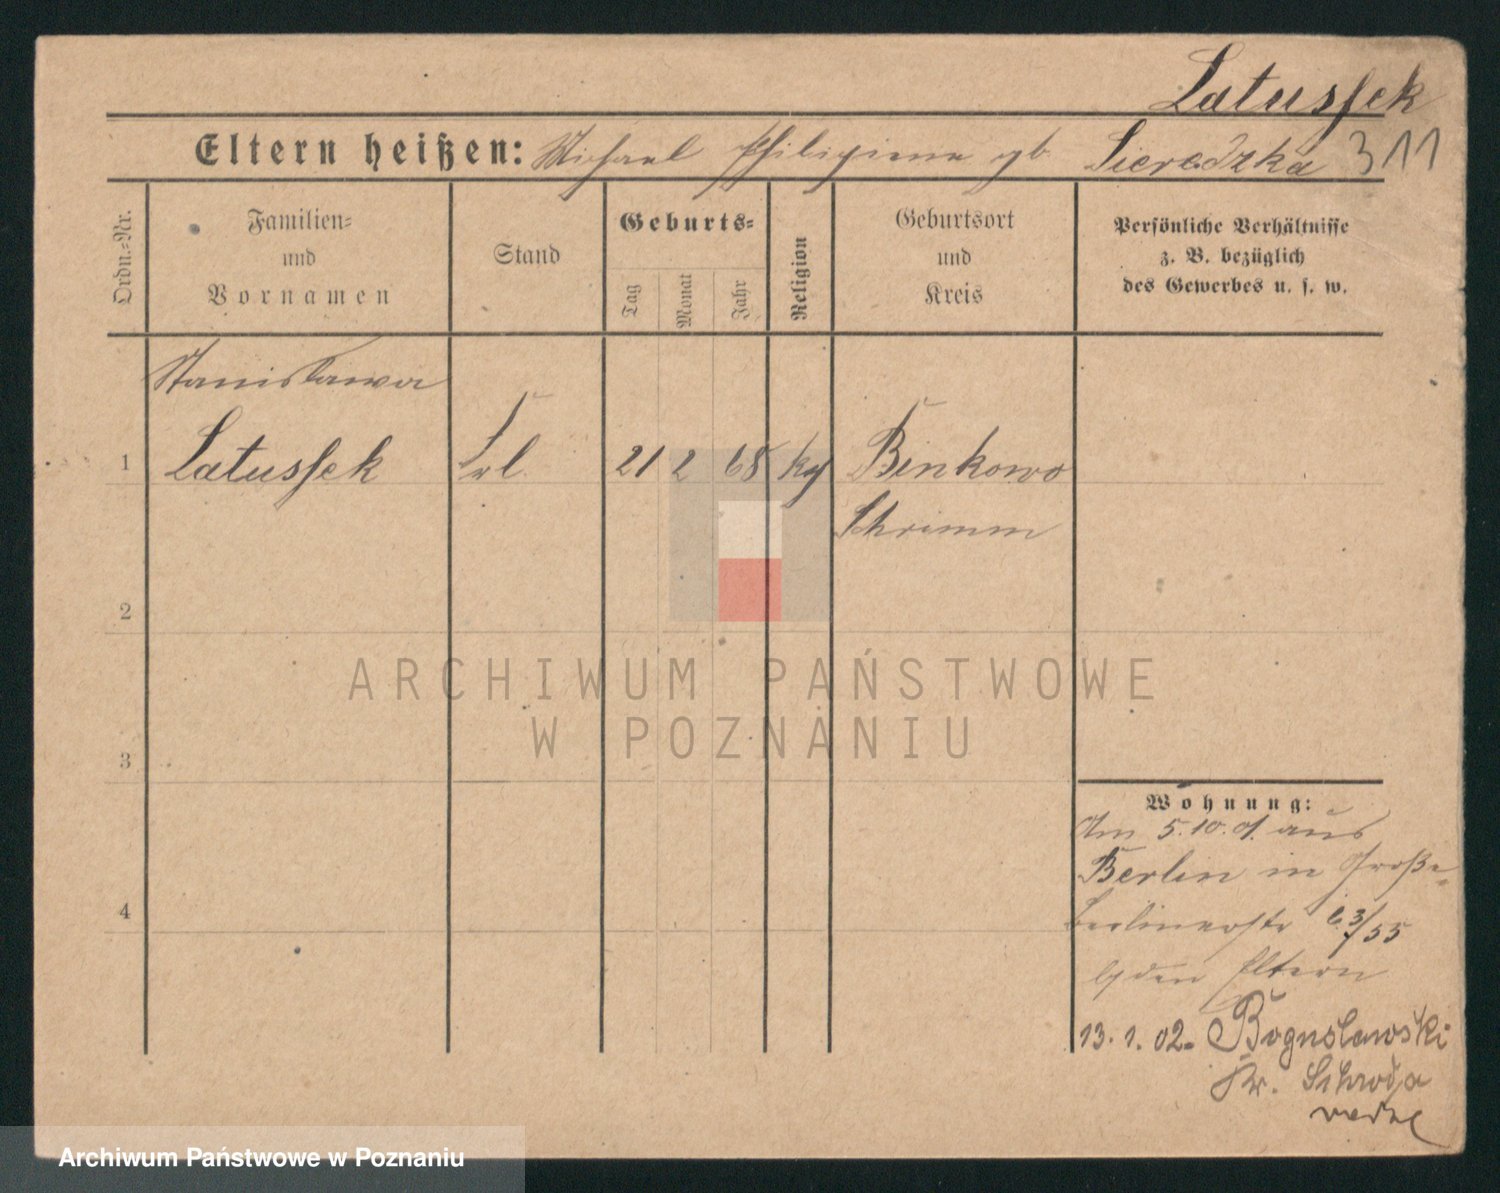 Latussek
Eltern heißen: Michael Philipina gb Sieradzka 311
Ordn.-Nr.
Familien-
und
Vornamen
Stand
Geburts-
Tag
Monat
Jahr
Religion
Geburtsort
und
Kreis
Persönliche Verhältnisse
z. B. bezüglich
des Gewerbes u. s. w.
Stanislawa
1 Latussek Frl. 21 2 68 Binkowo
Schrimm
2
3
4
ARCHIWUM PAŃSTWOWE
W POZNANIU
Wohnung:
Am 5.10.01. aus
Berlin in Große
Berlinerstr 63/55
Eltern
13.1.02. Boguslawski
Kr. Schroda
Archiwum Państwowe w Poznaniu